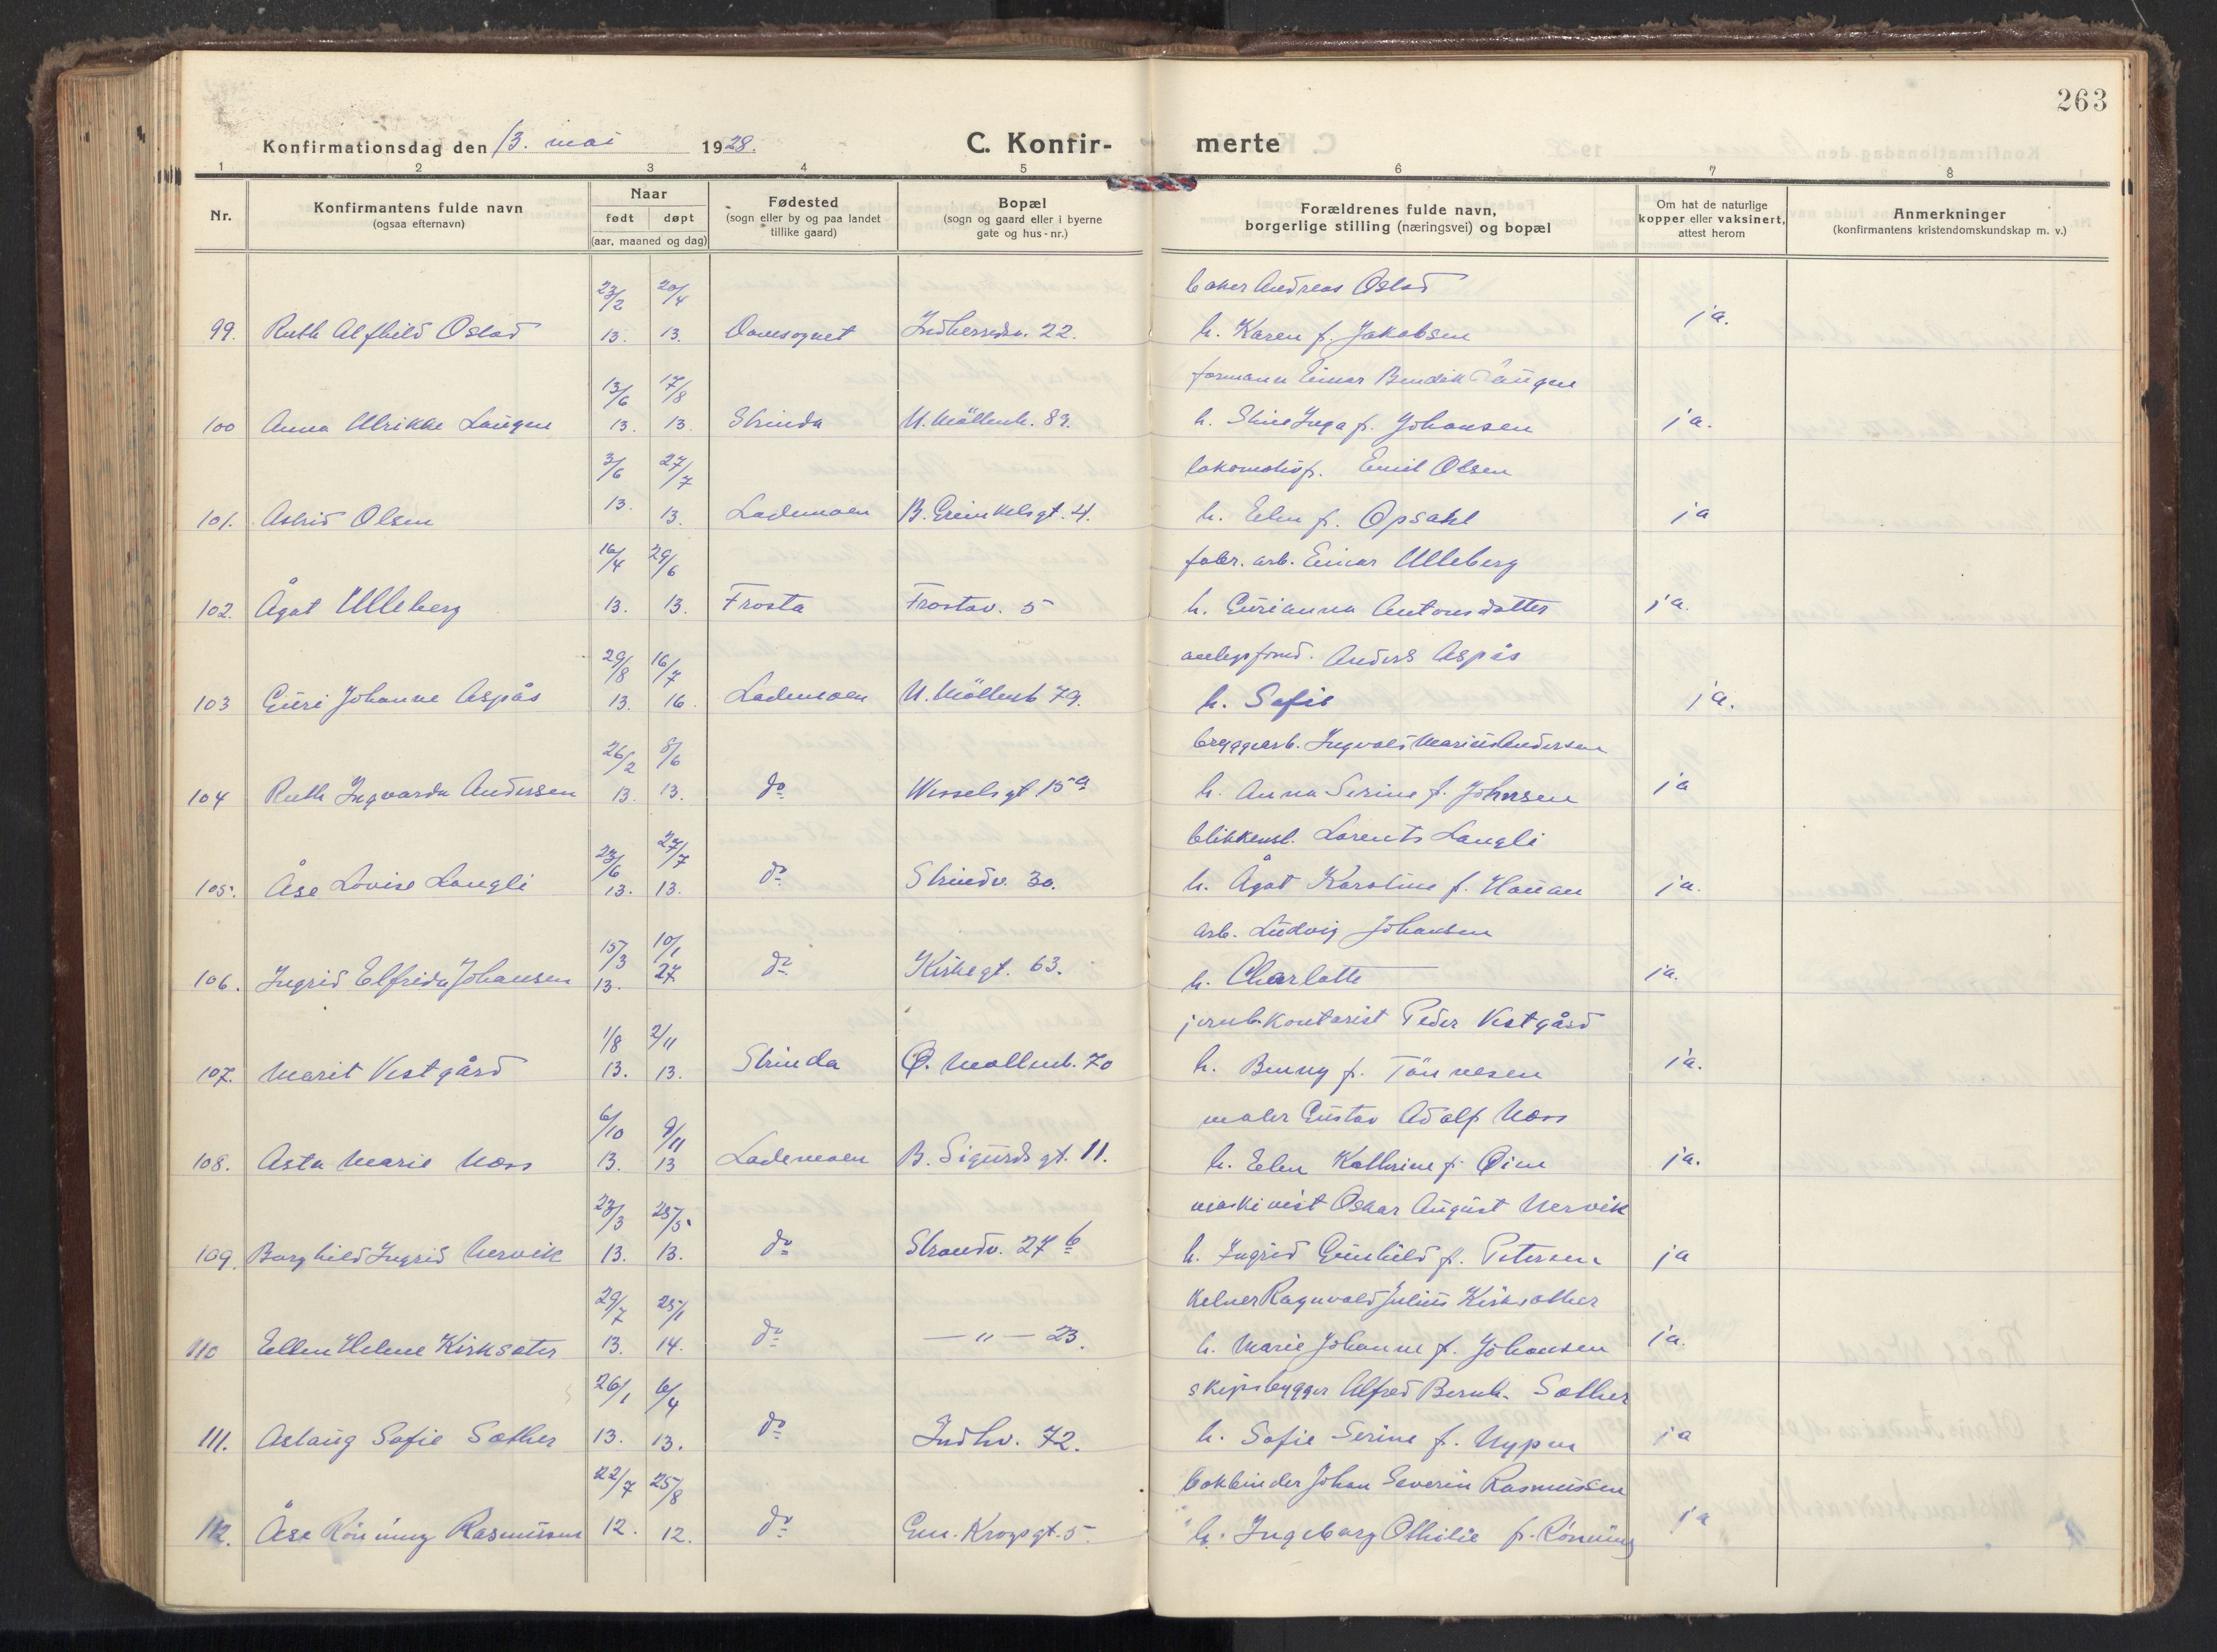 263
Konfirmationsdag den 13. mai 1928.
C. Konfir- merte
1 2 3 4 5 6 7 8
Nr.
Konfirmantens fulde navn
(ogsaa efternavn)
Naar
født døpt
(aar, maaned og dag)
Fødested
(sogn eller by og paa landet
tillike gaard)
Bopæl
(sogn og gaard eller i byerne
gate og hus-nr.)
Forældrenes fulde navn,
borgerlige stilling (næringsvei) og bopæl
Om hat de naturlige
kopper eller vaksinert,
attest herom
Anmerkninger
(konfirmantens kristendomskundskap m. v.)
23/2 20/4 baker Andreas Oslad
99. Ruth Alfhild Oslad 13. 13. Domsognet Indherredsv. 22. h. Karen f. Jakobsen ja.
13/6 17/8 formann Einar Bendik Laugen
100 Anna Ulrikke Laugen 13. 13. Strinda N. Möllenb. 89. h. Stine Inga f. Johansen ja.
3/6 27/7 lokomotivf. Emil Olsen
101. Astrid Olsen 13. 13. Lademoen B. Greinkelsgt. 4. h. Elen f. Opsahl ja
16/4 29/6 fabr. arb. Einar Ulleberg
102. Ågot Ulleberg 13. 13. Frosta Frostav. 5 h. Gurianna Antonsdatter ja.
29/8 16/7 anlegsform. Anders Aspås
103 Guri Johanne Aspås 13. 16. Lademoen N. Möllenb 79. h. Sofie ja.
26/2 8/6 bryggearb. Ingvald Marius Andersen
104 Ruth Ingvarda Andersen 13. 13. do Wesselsgt 15a h. Anna Serine f. Johnsen ja
23/6 27/7 blikkensl. Lorents Langli
105. Åse Lovise Langli 13. 13. do Strindv. 30. h. Ågot Karoline f. Hauan ja.
15/3 10/1 arb. Ludvig Johansen
106. Ingrid Elfrida Johansen 13. 27 do Kirkegt. 63. h. Charlotte — ja.
1/8 2/11 jernb.kontorist Peder Vestgård
107. Marit Vestgård 13. 13. Strinda Ø. Mollenb. 70 h. Benny f. Tönnesen ja.
6/10 9/11 maler Gustav Adolf Moss
108. Asta Marie Moss 13. 13 Lademoen B. Sigurds gt. 11. h. Elen Kathrine f. Øien ja.
23/3 25/5 maskinist Oskar August Nervik
109. Borghild Ingrid Nervik 13. 13. do Strandv. 27 b h. Ingrid Gunhild f. Petersen ja
29/7 25/1 kelner Ragnvald Julius Kirksæther
110 Ellen Helene Kirksæter 13. 14. do — " — 23. h. Marie Johanne f. Johansen ja.
26/1 6/4 skipsbygger Alfred Bernh. Sæther
111. Aslaug Sofie Sæther 13. 13. do Indhv. 72. h. Sofie Serine f. Nypan ja
22/7 25/8 bokbinder Johan Severin Rasmussen
112. Åse Rönning Rasmussen 12. 12. do Em. Krogsgt. 5 h. Ingeborg Othilie f. Rönning ja